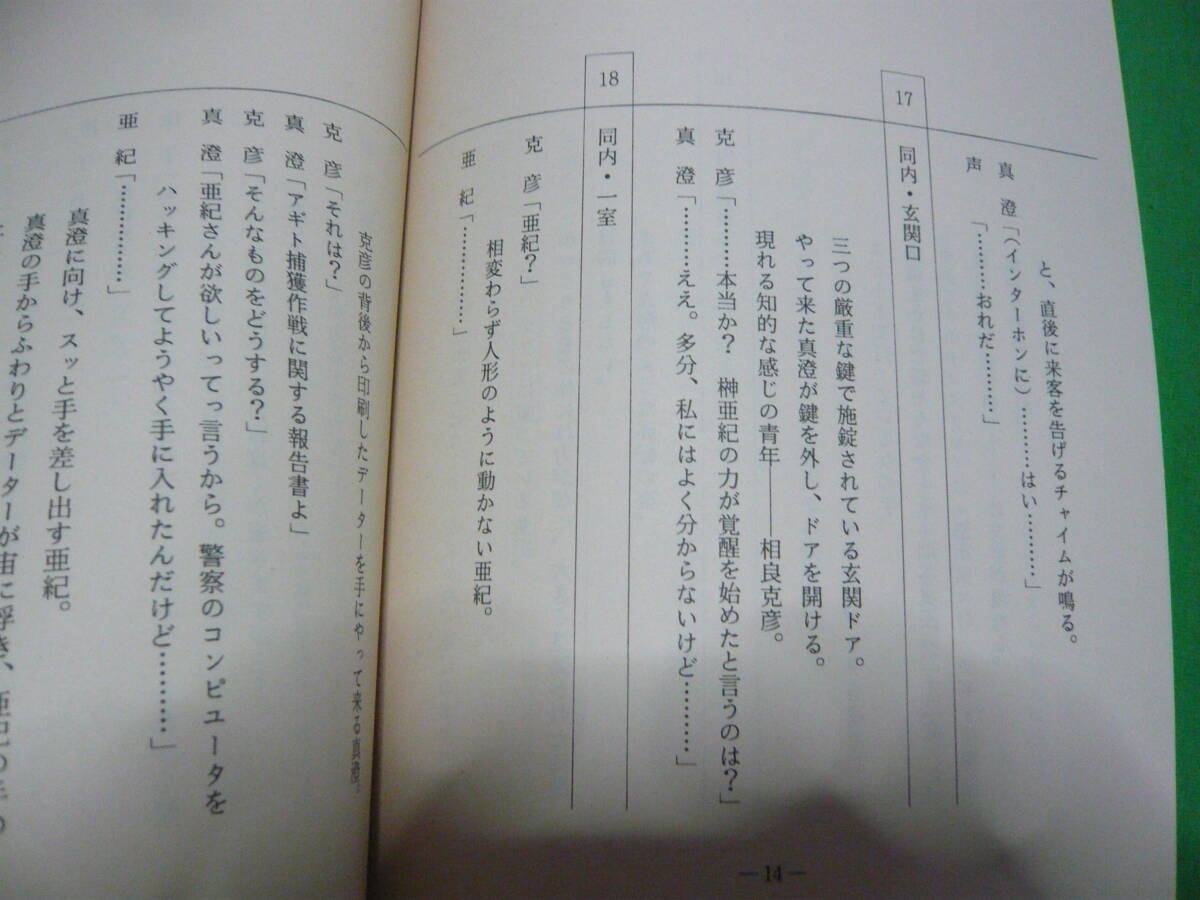 と、直後に来客を告げるチャイムが鳴る。
真　澄「（インターホンに）………はい…………」
声　　「………おれだ…………」
17　同内・玄関口
三つの厳重な鍵で施錠されている玄関ドア。
やって来た真澄が鍵を外し、ドアを開ける。
現れる知的な感じの青年――相良克彦。
克　彦「………本当か？　榊亜紀の力が覚醒を始めたと言うのは？」
真　澄「………ええ。多分、私にはよく分からないけど…………」
18　同内・一室
克　彦「亜紀？」
相変わらず人形のように動かない亜紀。
亜　紀「……………」
―14―
克彦の背後から印刷したデーターを手にやって来る真澄。
克　彦「それは？」
真　澄「アギト捕獲作戦に関する報告書よ」
克　彦「そんなものをどうする？」
真　澄「亜紀さんが欲しいってっ言うから。警察のコンピュータを
ハッキングしてようやく手に入れたんだけど…………」
亜　紀「……………」
真澄に向け、スッと手を差し出す亜紀。
真澄の手からふわりとデーターが宙に浮き、亜紀の手の